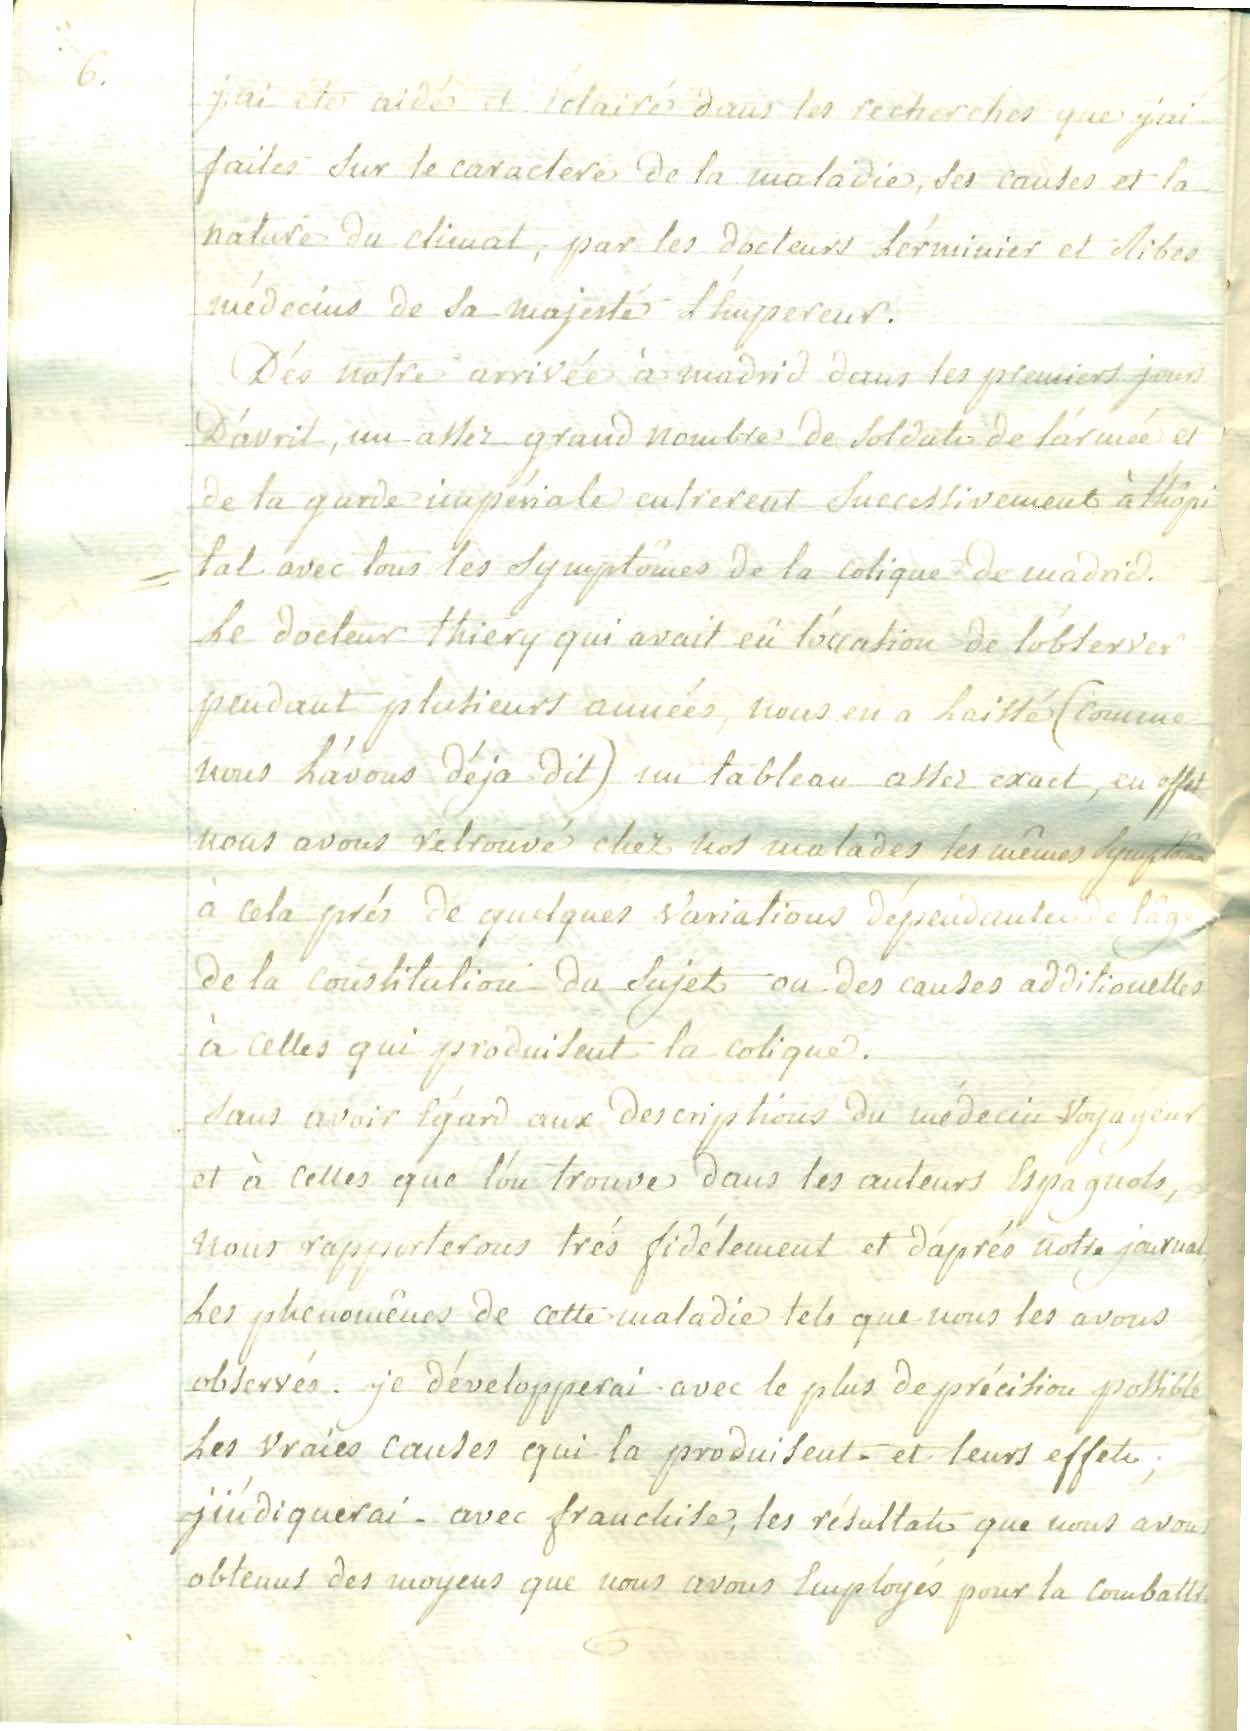 6.
j'ai été aidé et Eclairé dans les recherches que j'ai
faites sur le caractere de la maladie, ses causes et la
nature du climat, par les docteurs Lérminier et Ribes
médecins de sa majesté L'émpereur.
Dés notre arrivée à madrid dans les premiers jours
D'avril, un assez grand nombre de soldats de l'armée et
de la garde impériale entrerent successivement à l'hôpi
tal avec tous les symptômes de la colique de madrid.
Le docteur thiery qui avait eû l'occasion de l'observer
pendant plusieurs années, nous en a Laissé (comme
nous L'avons déja dit) un tableau assez exact, en effet
nous avons retrouvé chez nos malades les mêmes symptômes
à cela prés de quelques variations dépendantes de l'âge
de la constitution du sujet ou des causes additionelles
à celles qui produisent la colique.
sans avoir Egard aux descriptions du médecin voyageur
et à celles que l'on trouve dans les auteurs Espagnols,
nous rapporterons trés fidélement et d'aprés notre journal
Les phenomênes de cette maladie tels que nous les avons
observés. je développerai avec le plus de précision possible
Les vraies causes qui la produisent et leurs effets;
j'indiquerai avec franchise, les résultats que nous avons
obtenus des moyens que nous avons Employés pour la combattre